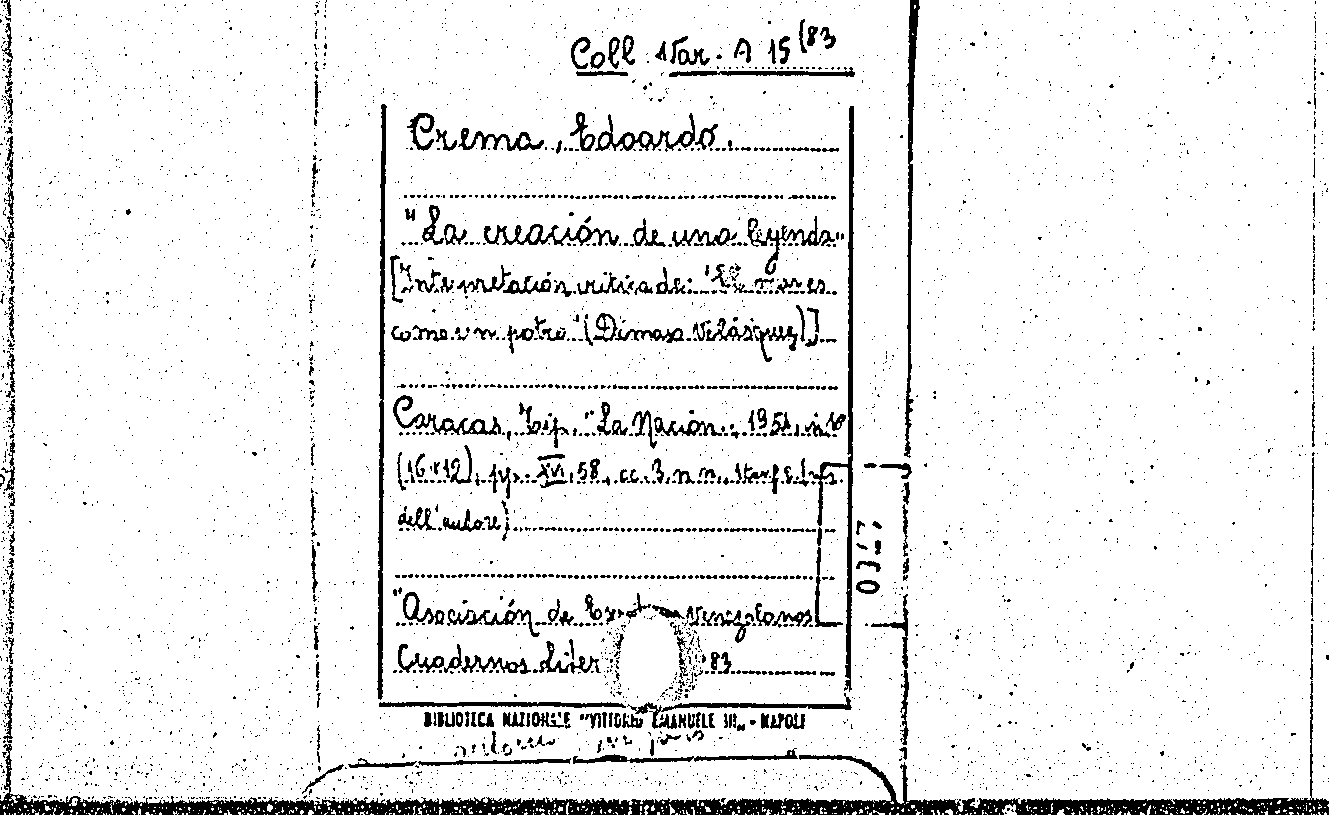 Coll Var. A 15 (83
Crema, Edoardo.
"La creación de una leyenda"
[Interpretación critica de: "El mar es
come un potro" (Dimas Velásquez)]
Caracas, Tip. "La Nación", 1951, in 16
(16x12), pp. XVI, 58, cc. 3 n. n.
dell'autore)
"Asociación de Venezolanos
Cuadernos Liter 83
BIBLIOTECA NAZIONALE "VITTORIO EMANUELE III" - NAPOLI